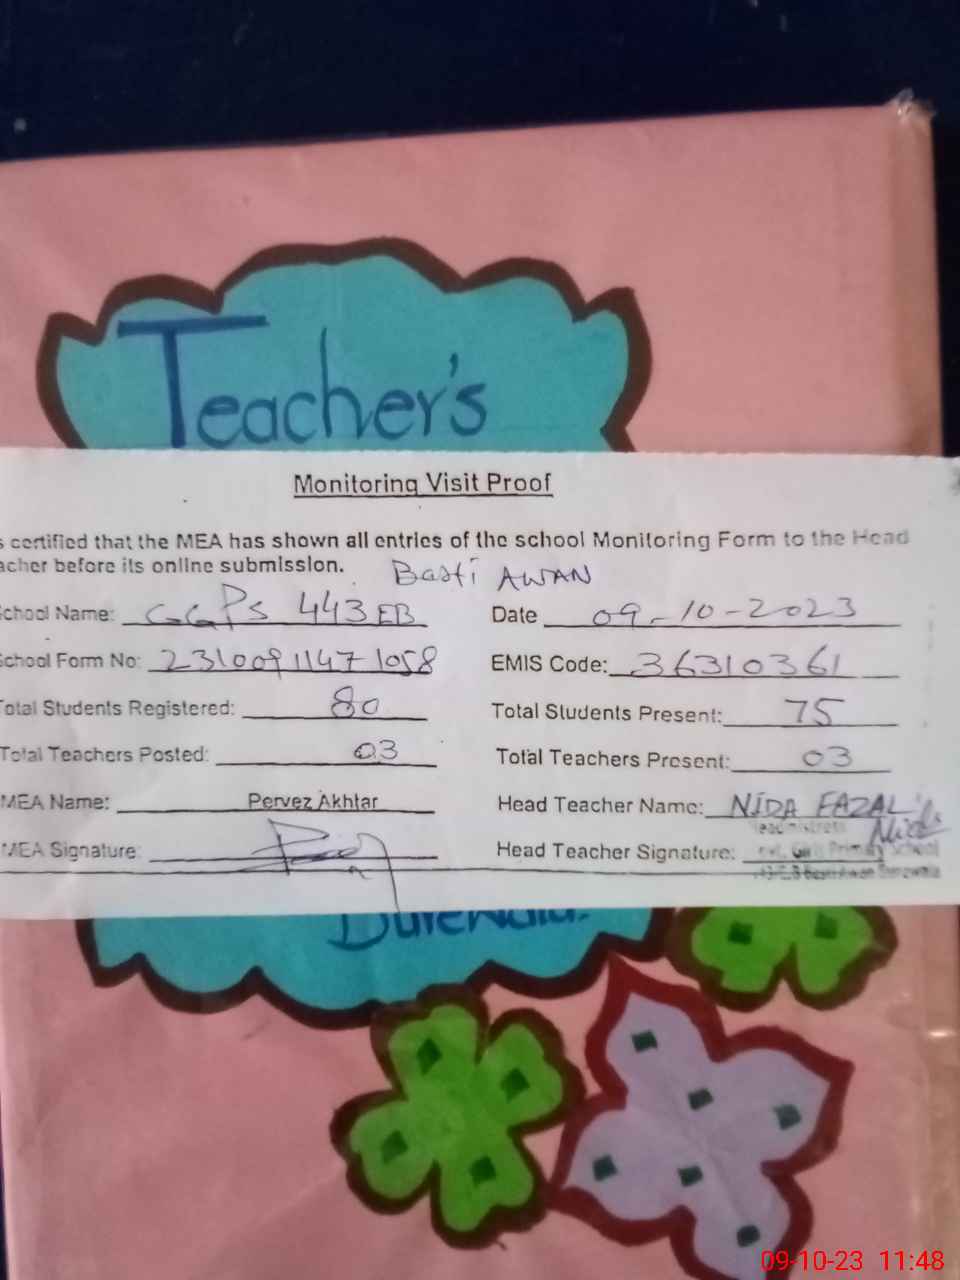 Teacher's
Monitoring Visit Proof
certified that the MEA has shown all entries of the school Monitoring Form to the Head
acher before its online submission.
Basti AWAN
School Name: GGPS 443 EB Date 09-10-2023
School Form No: 23100911471058 EMIS Code: 36310361
Total Students Registered: 80 Total Students Present: 75
Total Teachers Posted: 03 Total Teachers Present: 03
MEA Name: Pervez Akhtar Head Teacher Name: NIDA FAZAL
MEA Signature: Head Teacher Signature:
Girls Primary School
09-10-23 11:48